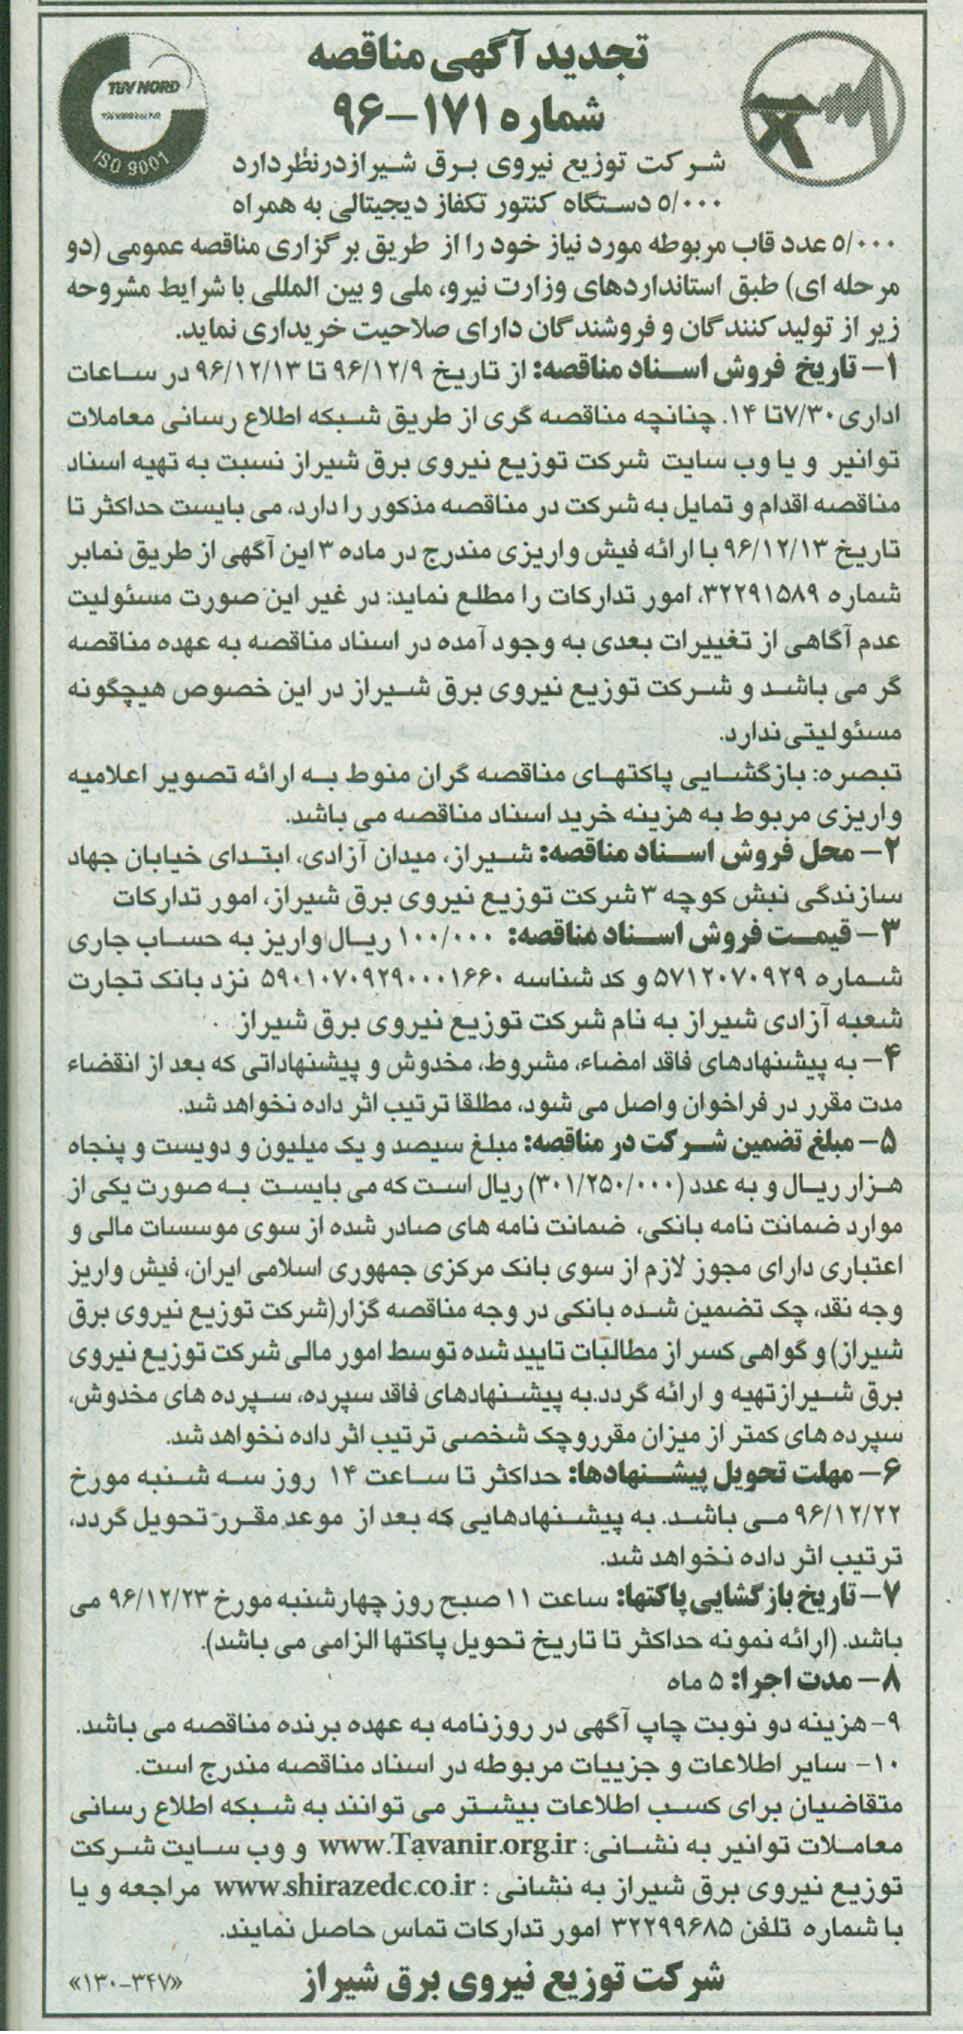 تجدید آگهی مناقصه
شماره ۱۷۱-۹۶
TÜV NORD
ISO 9001
شرکت توزیع نیروی برق شیراز درنظر دارد
۵/۰۰۰ دستگاه کنتور تکفاز دیجیتالی به همراه
۵/۰۰۰ عدد قاب مربوطه مورد نیاز خود را از طریق برگزاری مناقصه عمومی (دو
مرحله ای) طبق استانداردهای وزارت نیرو، ملی و بین المللی با شرایط مشروحه
زیر از تولید کنندگان و فروشندگان دارای صلاحیت خریداری نماید.
۱- تاریخ فروش اسناد مناقصه: از تاریخ ۹۶/۱۲/۹ تا ۹۶/۱۲/۱۳ در ساعات
اداری ۷/۳۰ تا ۱۴. چنانچه مناقصه گری از طریق شبکه اطلاع رسانی معاملات
توانیر و یا وب سایت شرکت توزیع نیروی برق شیراز نسبت به تهیه اسناد
مناقصه اقدام و تمایل به شرکت در مناقصه مذکور را دارد، می بایست حداکثر تا
تاریخ ۹۶/۱۲/۱۳ با ارائه فیش واریزی مندرج در ماده ۳ این آگهی از طریق نمابر
شماره ۳۲۲۹۱۵۸۹، امور تدارکات را مطلع نماید: در غیر این صورت مسئولیت
عدم آگاهی از تغییرات بعدی به وجود آمده در اسناد مناقصه به عهده مناقصه
گر می باشد و شرکت توزیع نیروی برق شیراز در این خصوص هیچگونه
مسئولیتی ندارد.
تبصره: بازگشایی پاکتهای مناقصه گران منوط به ارائه تصویر اعلامیه
واریزی مربوط به هزینه خرید اسناد مناقصه می باشد.
۲- محل فروش اسناد مناقصه: شیراز، میدان آزادی، ابتدای خیابان جهاد
سازندگی نبش کوچه ۳ شرکت توزیع نیروی برق شیراز، امور تدارکات
۳- قیمت فروش اسناد مناقصه: ۱۰۰/۰۰۰ ریال واریز به حساب جاری
شماره ۵۷۱۲۰۷۰۹۲۹ و کد شناسه ۵۹۰۱۰۷۰۹۲۹۰۰۰۱۶۶۰ نزد بانک تجارت
شعبه آزادی شیراز به نام شرکت توزیع نیروی برق شیراز.
۴- به پیشنهادهای فاقد امضاء، مشروط، مخدوش و پیشنهاداتی که بعد از انقضاء
مدت مقرر در فراخوان واصل می شود، مطلقا ترتیب اثر داده نخواهد شد.
۵- مبلغ تضمین شرکت در مناقصه: مبلغ سیصد و یک میلیون و دویست و پنجاه
هزار ریال و به عدد (۳۰۱/۲۵۰/۰۰۰) ریال است که می بایست به صورت یکی از
موارد ضمانت نامه بانکی، ضمانت نامه های صادر شده از سوی موسسات مالی و
اعتباری دارای مجوز لازم از سوی بانک مرکزی جمهوری اسلامی ایران، فیش واریز
وجه نقد، چک تضمین شده بانکی در وجه مناقصه گزار(شرکت توزیع نیروی برق
شیراز) و گواهی کسر از مطالبات تایید شده توسط امور مالی شرکت توزیع نیروی
برق شیراز تهیه و ارائه گردد.به پیشنهادهای فاقد سپرده، سپرده های مخدوش،
سپرده های کمتر از میزان مقرروچک شخصی ترتیب اثر داده نخواهد شد.
۶- مهلت تحویل پیشنهادها: حداکثر تا ساعت ۱۴ روز سه شنبه مورخ
۹۶/۱۲/۲۲ می باشد. به پیشنهادهایی که بعد از موعد مقرر تحویل گردد،
ترتیب اثر داده نخواهد شد.
۷- تاریخ بازگشایی پاکتها: ساعت ۱۱ صبح روز چهارشنبه مورخ ۹۶/۱۲/۲۳ می
باشد. (ارائه نمونه حداکثر تا تاریخ تحویل پاکتها الزامی می باشد).
۸- مدت اجرا: ۵ ماه
۹- هزینه دو نوبت چاپ آگهی در روزنامه به عهده برنده مناقصه می باشد.
۱۰- سایر اطلاعات و جزییات مربوطه در اسناد مناقصه مندرج است.
متقاضیان برای کسب اطلاعات بیشتر می توانند به شبکه اطلاع رسانی
معاملات توانیر به نشانی: www.Tavanir.org.ir و وب سایت شرکت
توزیع نیروی برق شیراز به نشانی : www.shirazedc.co.ir مراجعه و یا
با شماره تلفن ۳۲۲۹۹۶۸۵ امور تدارکات تماس حاصل نمایند.
شرکت توزیع نیروی برق شیراز
«۱۳۰-۳۴۷»